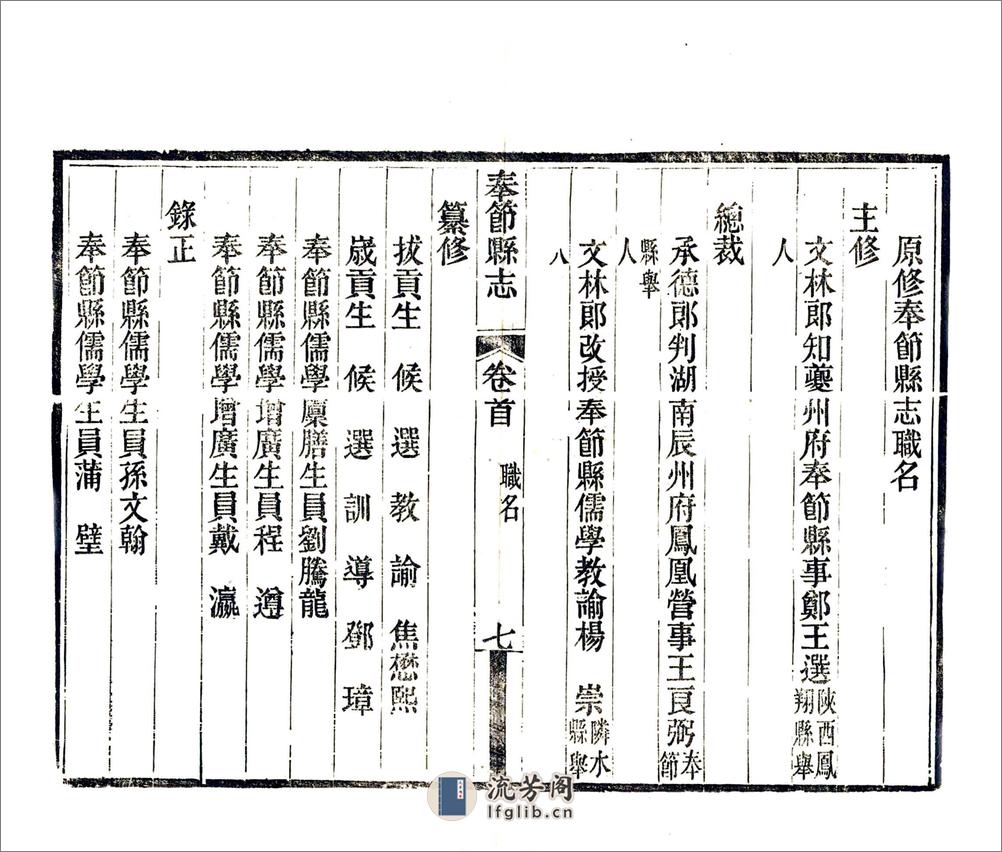 原修奉節縣志職名
主修
文林郎知夔州府奉節縣事鄭王選陝西鳳翔縣舉
人
總裁
承德郎判湖南辰州府鳳凰營事王良弼奉節
縣舉
人
文林郎改授奉節縣儒學教諭楊　崇隣水縣舉
八
奉節縣志　卷首　職名　七
纂修
拔貢生候選教諭焦懋熙
歲貢生候選訓導鄧璋
奉節縣儒學廩膳生員劉騰龍
奉節縣儒學增廣生員程　遵
奉節縣儒學增廣生員戴　瀛
錄正
奉節縣儒學生員孫文翰
奉節縣儒學生員蒲　璧
流芳阁
lfglib.cn